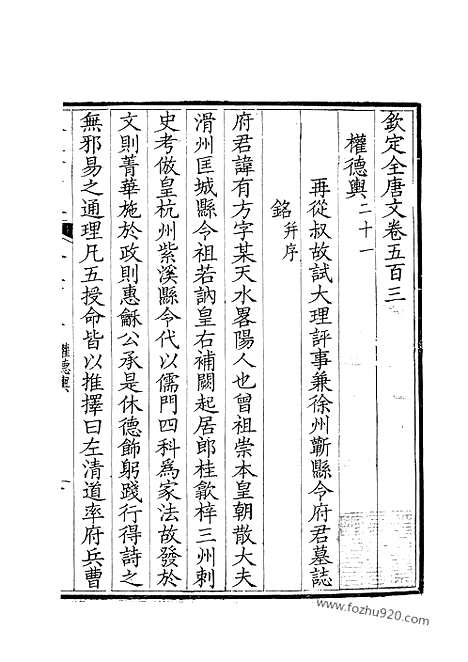 欽定全唐文卷五百三
權德輿二十一
再從叔故試大理評事兼徐州蘄縣令府君墓誌
銘并序
府君諱有方字某天水畧陽人也曾祖崇本皇朝散大夫
滑州匡城縣令祖若訥皇右補闕起居郎桂歙梓三州刺
史考倣皇杭州紫溪縣令代以儒門四科爲家法故發於
文則菁華施於政則惠龢公承是休德飾躬踐行得詩之
無邪易之通理凡五授命皆以推擇曰左清道率府兵曹
權德輿
一
www.fozhu920.com